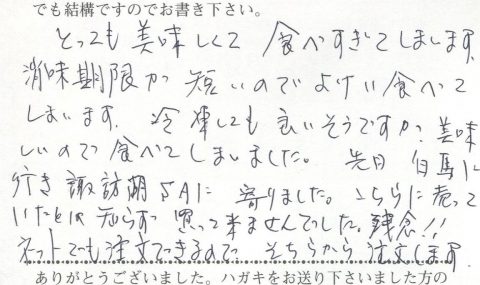 でも結構ですのでお書き下さい。
とっても美味しくて食べすぎてしまします。
消味期限が短いのでよけい食べて
しまいます。冷凍しても良いそうですが、美味
しいので食べてしまいました。先日白馬に
行き諏訪湖SAに寄りました。こちらに売って
いたとは知らず買って来ませんでした。残念!!
ネットでも注文できるので そちらから注文します。
ありがとうございました。ハガキをお送り下さいました方の